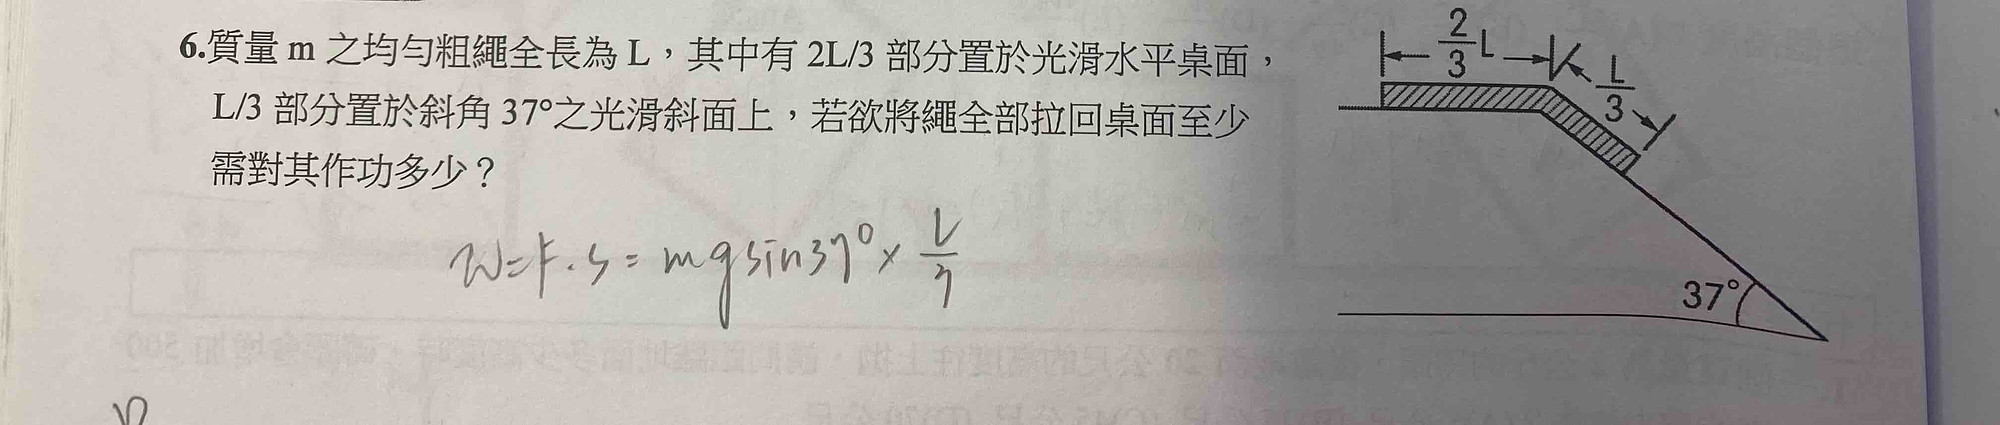 6.質量 m 之均勻粗繩全長為 L，其中有 2L/3 部分置於光滑水平桌面，
L/3 部分置於斜角 37°之光滑斜面上，若欲將繩全部拉回桌面至少
需對其作功多少？
2/3 L
L/3
37°
W=F.S=mgsin37°× L/3